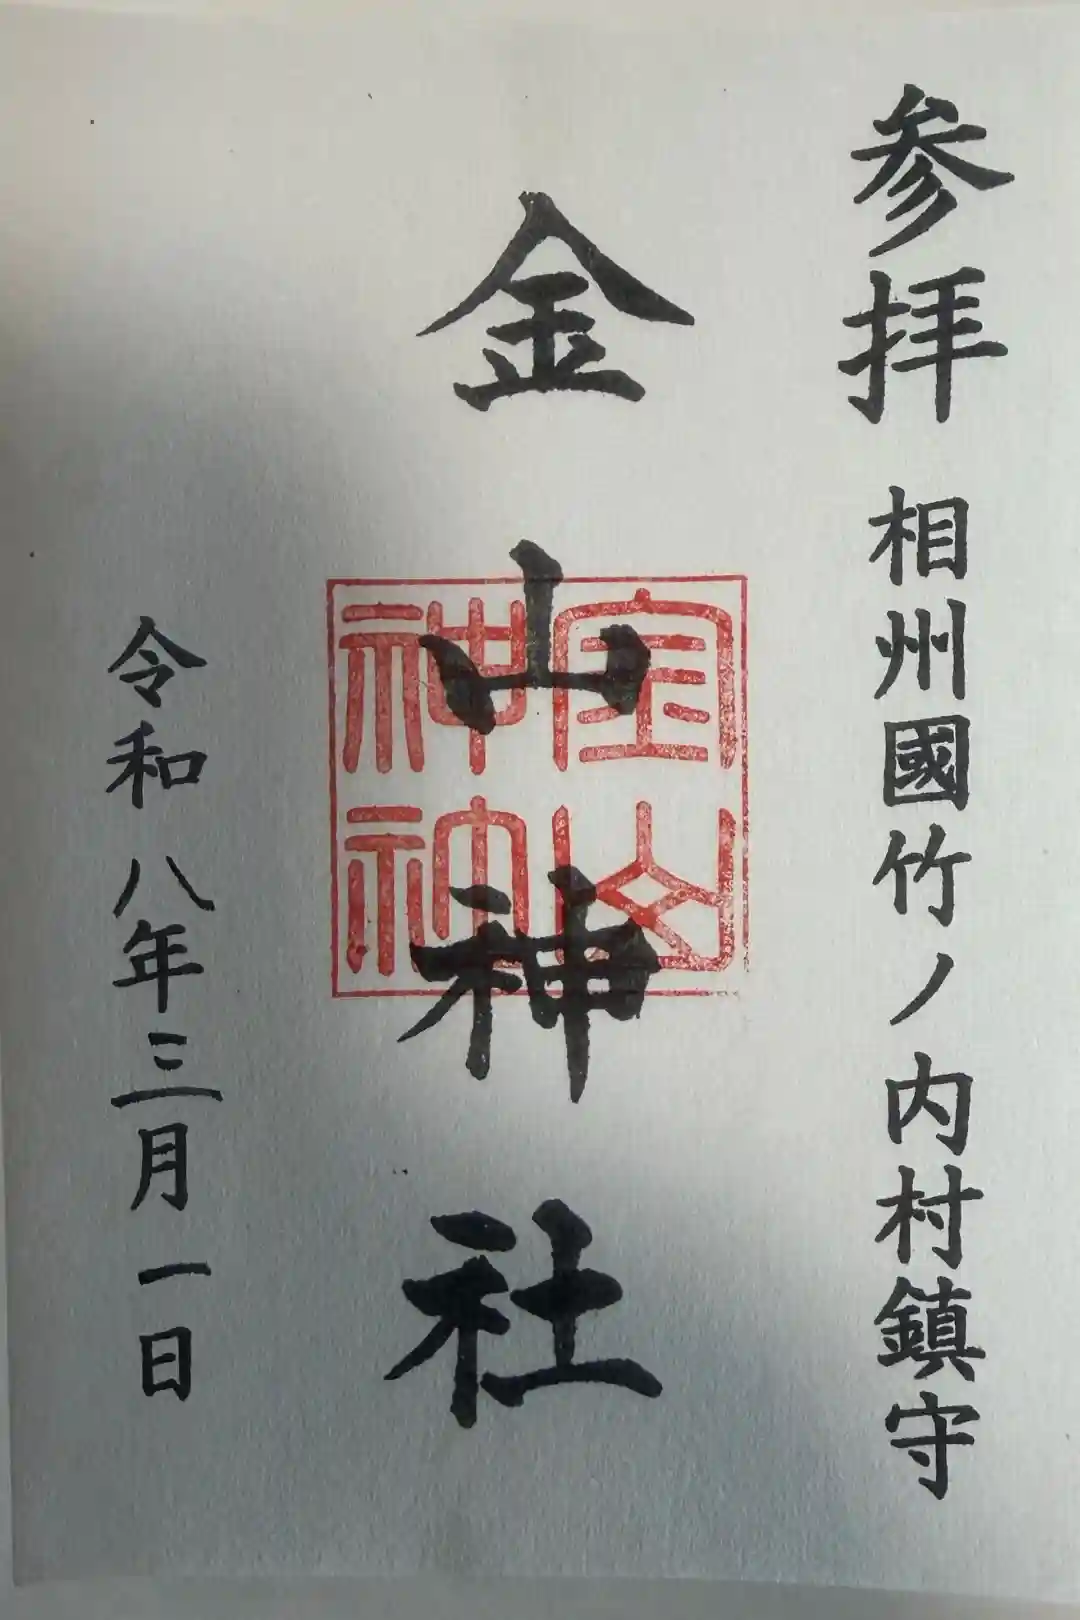 参拝 相州國竹ノ内村鎮守
金山神社
金山
神社
令和八年三月一日